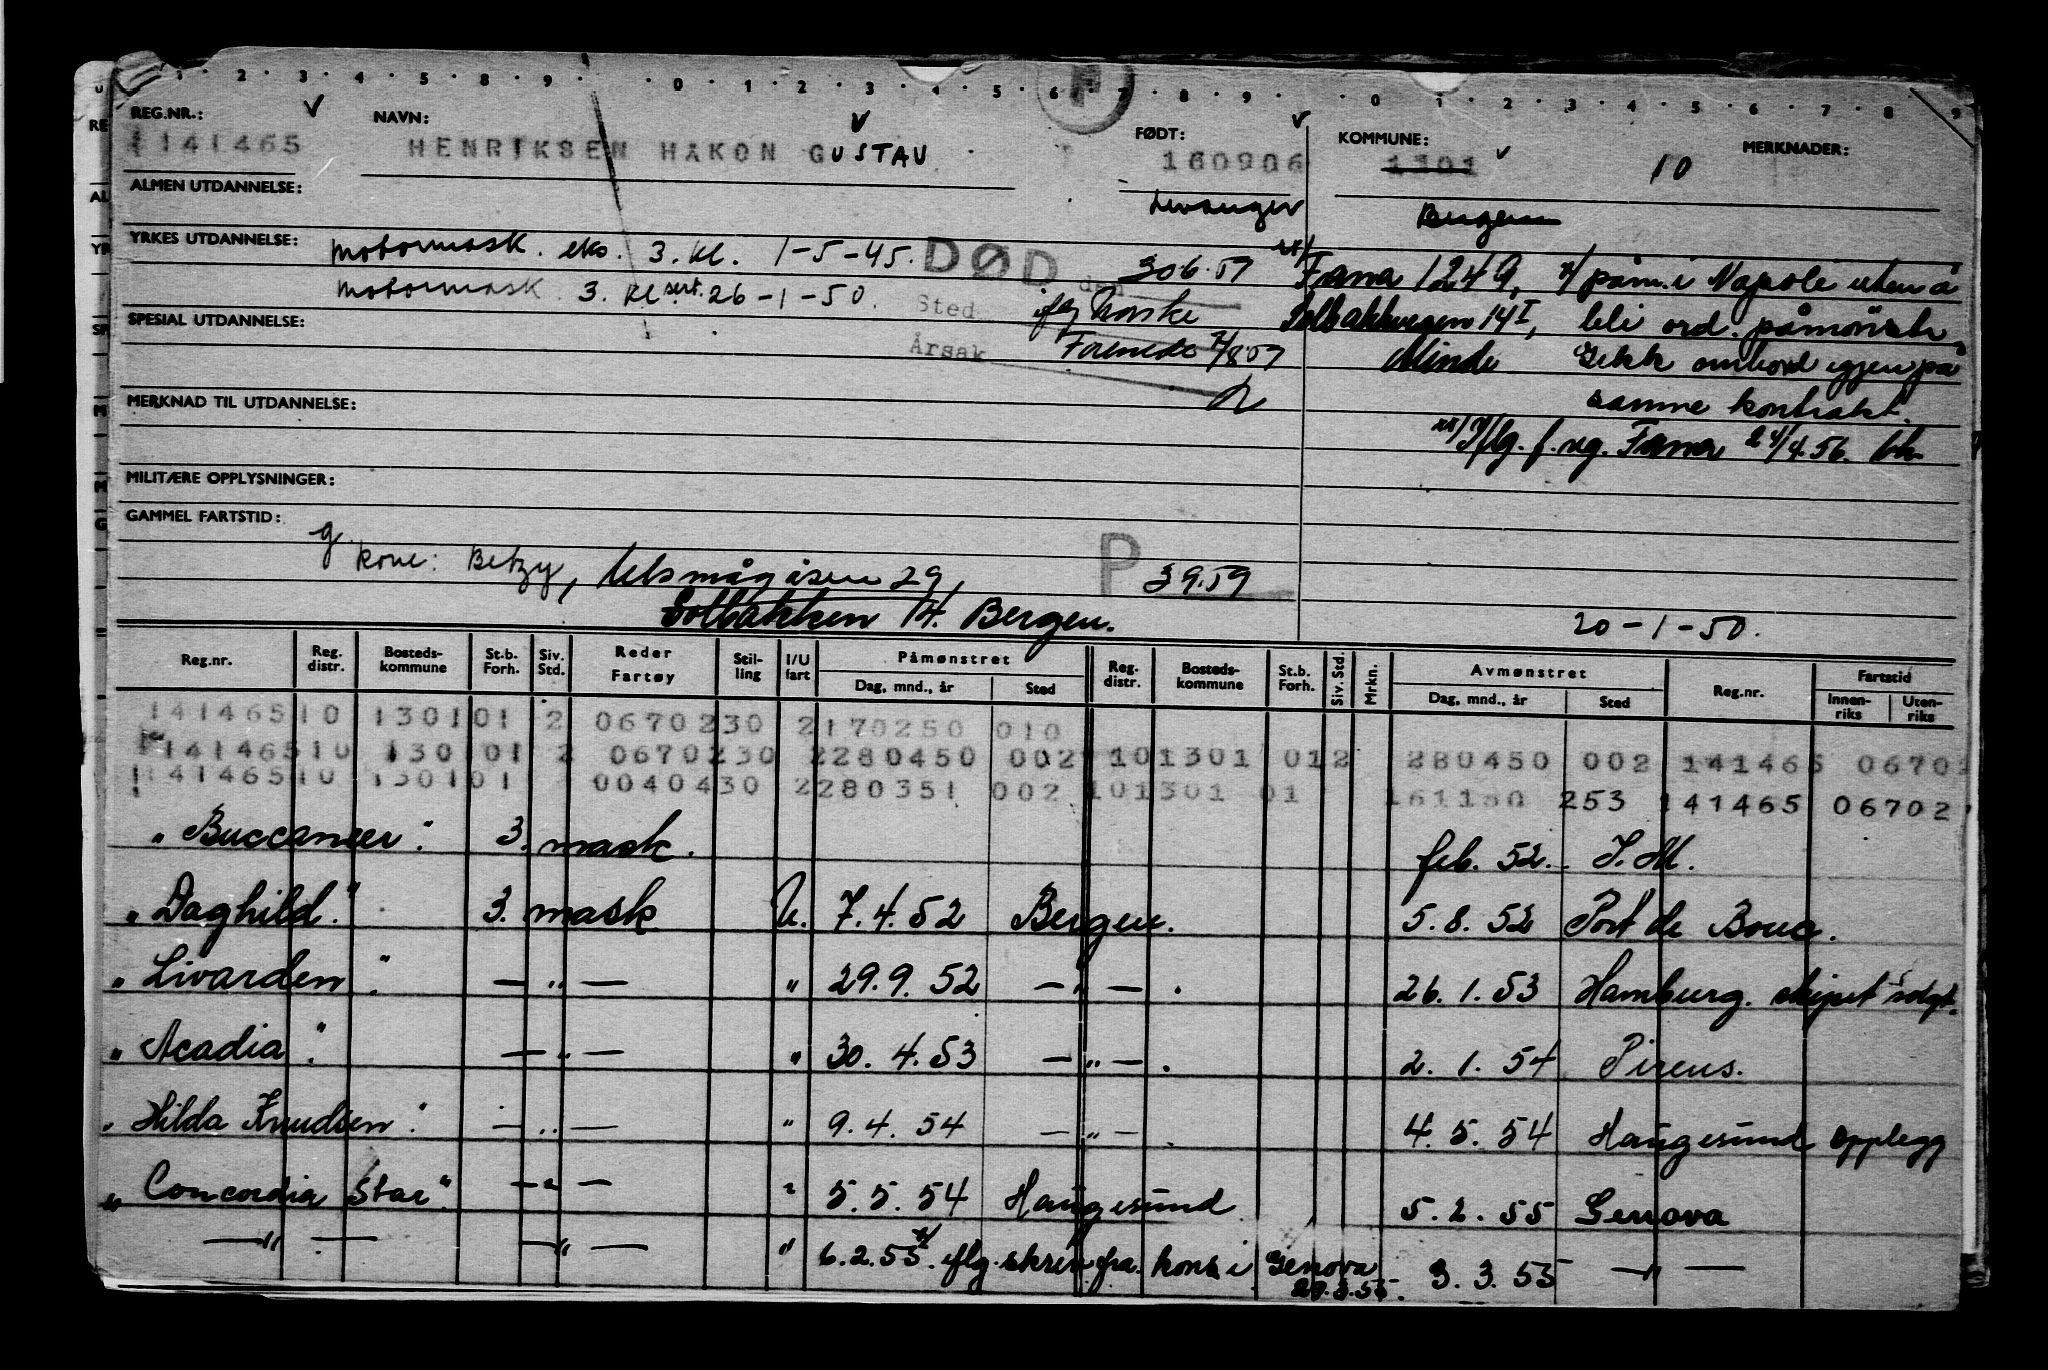 1 · 2 · 3 · 4 · 5 · 8 · 9 · · 0 · 1 · 2 · 3 · 4 · 5 · 6 · 7 · 8 · 9 · · 0 · 1 · 2 · 3 · 4 · 5 · 6 · 7 · 8 · 9
REG.NR.: NAVN: FØDT: KOMMUNE: MERKNADER:
141465 HENRIKSEN HAKON GUSTAV 160906 1301 10
ALMEN UTDANNELSE: Levanger Bergen
YRKES UTDANNELSE: motormask. eks. 3. kl. 1-5-45. DØD den 306.59 Fana 1249, x/ påm. i Napoli uten å
motormask. 3. kl. sert. 26-1-50. Sted iflg Norske Solbakkvegen 14 I, bli ord. påmönstr.
SPESIAL UTDANNELSE: Årsak Forende 7/8 59 Minde Gikk ombord igjen på
MERKNAD TIL UTDANNELSE: samme kontrakt.
xx/ Iflg. f. reg. Fana 24/4.56.
MILITÆRE OPPLYSNINGER:
GAMMEL FARTSTID:
g. kone: Betzy, Ulsmågåsen 29, P 39.59
Solbakken 14. Bergen. 20-1-50.
Reg.nr. Reg. distr. Bosteds-kommune St.b. Forh. Siv. Std. Reder Fartøy Stil-ling I/U fart Påmønstret Dag, mnd., år Sted Reg. distr. Bosteds-kommune St.b. Forh. Siv. Std. Mrkn. Avmønstret Dag, mnd., år Sted Reg.nr. Fartstid Innen-riks Uten-riks
141465 10 1301 01 2 0670230 2 170250 010
141465 10 1301 01 2 0670230 2 280450 002 10 1301 01 2 280450 002 141465 06702
141465 10 1301 01 0040430 2 280351 002 10 1301 01 161150 253 141465 06702
"Buccaneer". 3. mask. feb. 52. I.M.
"Daghild". 3. mask. U. 7.4.52 Bergen. 5.8.52 Port de Bouc.
"Livarden". — " — " 29.9.52 — " — . 26.1.53 Hamburg. skipet solgt.
"Acadia". — " — " 30.4.53 — " — . 2.1.54 Pireus.
"Hilda Knudsen". — " — " 9.4.54 — " — . 4.5.54 Haugesund opplegg
"Concordia Star". — " — " 5.5.54 Haugesund 5.2.55 Genova
— " — — " — " 6.2.55 x/ iflg. skriv fra kons i Genova 29.3.55. 3.3.55 — " —